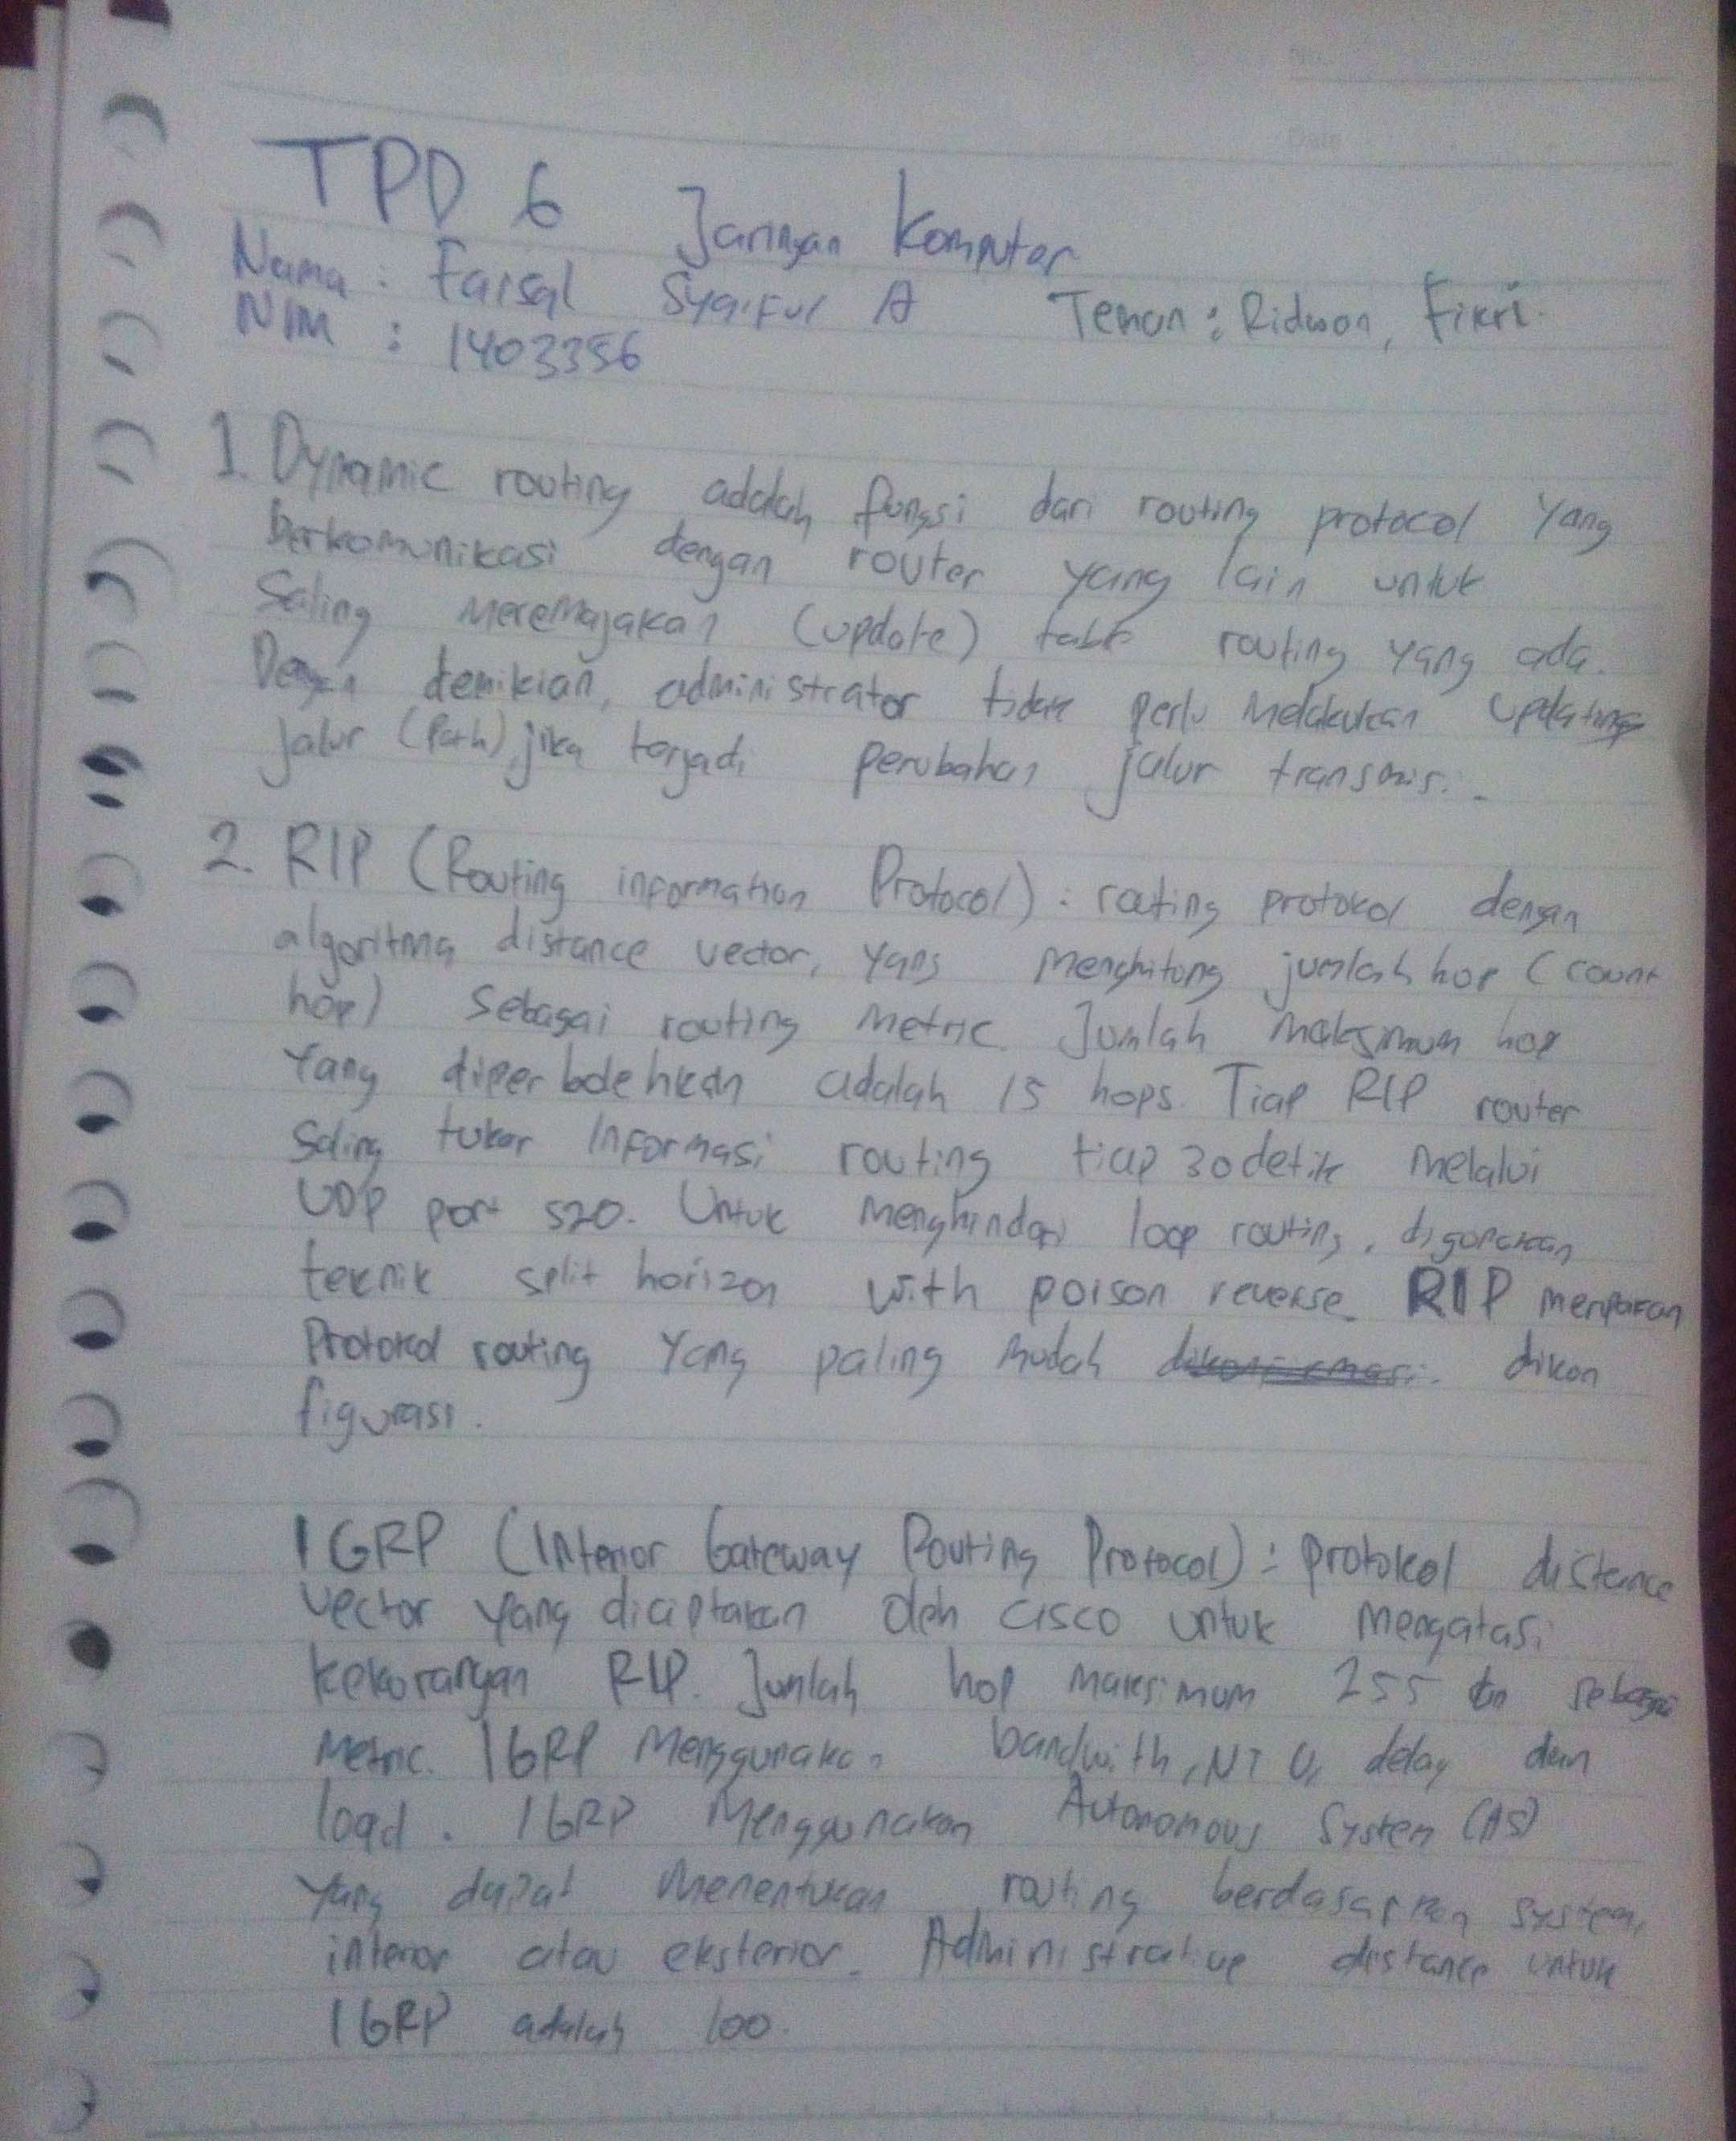 No.
Date
TPD 6 Jaringan Komputer
Nama : Faisal Syaiful A Teman : Ridwan, Fikri
NIM : 1403356
1. Dynamic routing adalah fungsi dari routing protocol yang
berkomunikasi dengan router yang lain untuk
Saling meremajakan (update) table routing yang ada.
Dengan demikian, administrator tidak perlu melakukan updating
jalur (Path), jika terjadi perubahan jalur transmisi.
2. RIP (Routing information Protocol) : routing protokol dengan
algoritma distance vector, yang menghitung jumlah hop (count
hop) sebagai routing metric. Jumlah maksimum hop
yang diperbolehkan adalah 15 hops. Tiap RIP router
saling tukar informasi routing tiap 30 detik melalui
UDP port 520. Untuk menghindari loop routing, digunakan
teknik split horizon with poison reverse. RIP merupakan
Protokol routing yang paling mudah dikon
figurasi.
IGRP (Interior Gateway Routing Protocol) : protokol distance
vector yang diciptakan oleh cisco untuk mengatasi
kekurangan RIP. Jumlah hop maksimum 255 sebagai
metric. IGRP Menggunakan bandwith, MTU, delay dan
load. IGRP Menggunakan Autonomous System (AS)
yang dapat menentukan routing berdasarkan system,
interior atau eksterior. Administrative distance untuk
IGRP adalah 100.